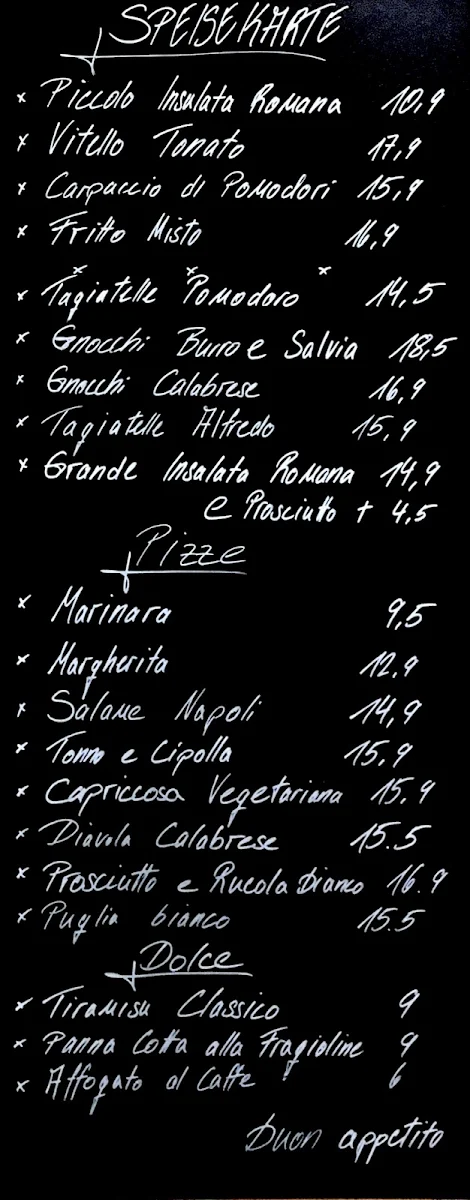 SPEISEKARTE
x Piccolo Insalata Romana 10,9
x Vitello Tonato 17,9
x Carpaccio di Pomodori 15,9
x Fritto Misto 16,9
x x x
x Tagiatelle Pomodoro 14,5
x Gnocchi Burro e Salvia 18,5
x Gnocchi Calabrese 16,9
x Tagiatelle Alfredo 15,9
x Grande Insalata Romana 14,9
e Prosciutto + 4,5
Pizze
x Marinara 9,5
x Margherita 12.9
x Salame Napoli 14,9
x Tonno e Cipolla 15,9
x Capriccosa Vegetariana 15.9
x Diavola Calabrese 15.5
x Prosciutto e Rucola Bianco 16.9
x Puglia bianco 15.5
Dolce
x Tiramisu Classico 9
x Panna Cotta alla Fragioline 9
x Affogato al Caffe 6
Buon appetito